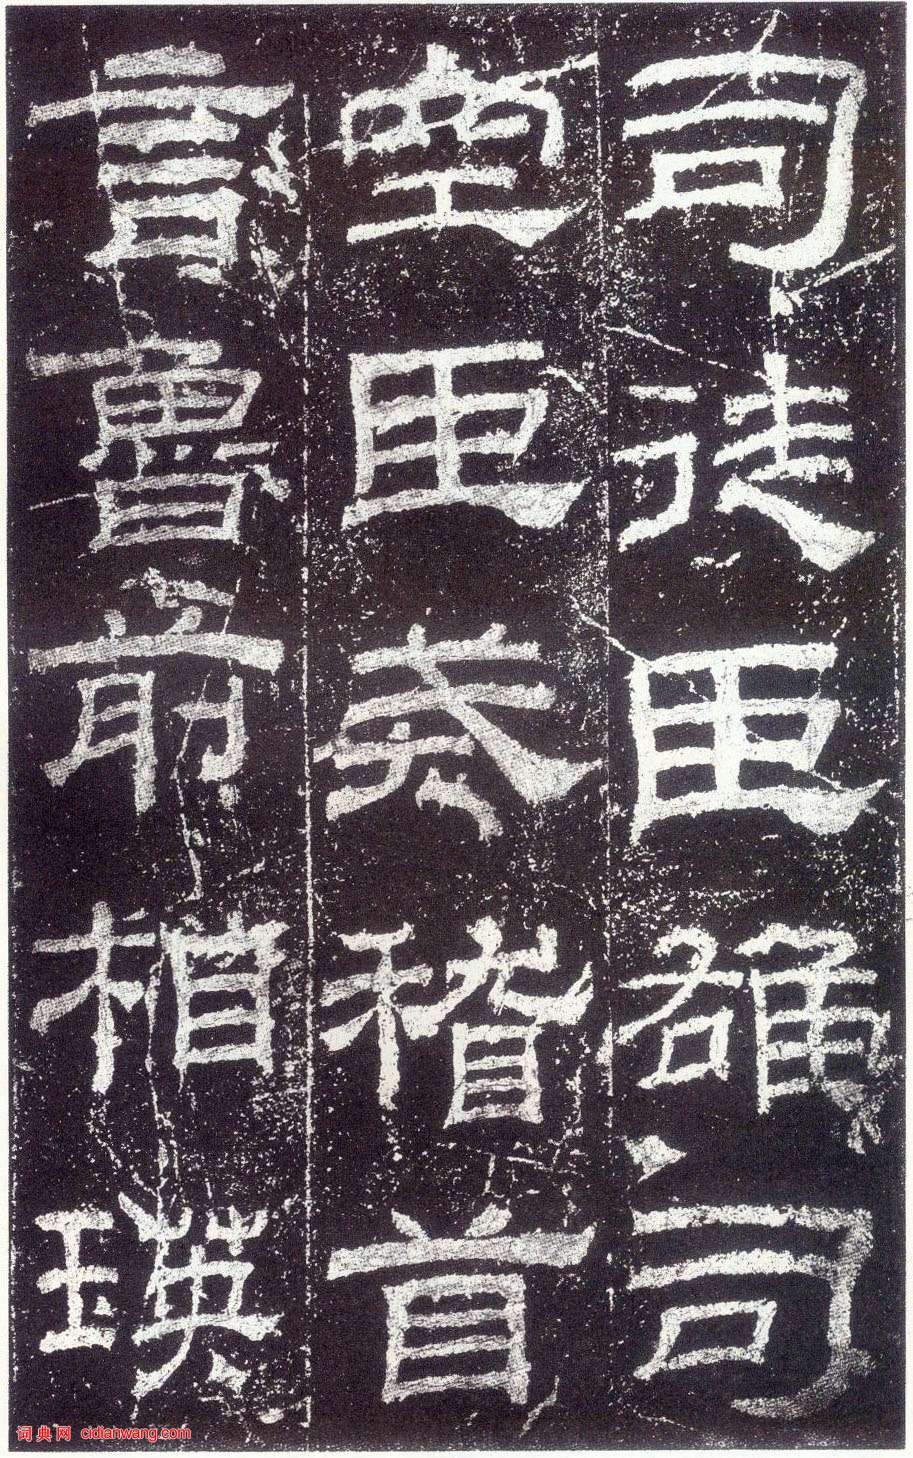 司徒臣雄司
空臣戒稽首
言魯前相瑛
词典网 cidianwang.com